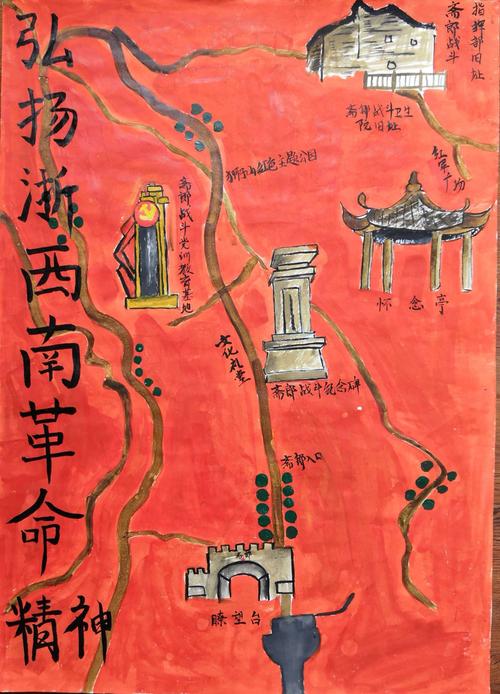 弘扬浙西南革命精神
斋郎战斗
指挥部旧址
斋郎战斗卫生
院旧址
红军广场
狮子山红色主题公园
斋郎战斗党训教育基地
怀念亭
文化礼堂
斋郎战斗纪念碑
斋郎入口
斋郎
瞭望台